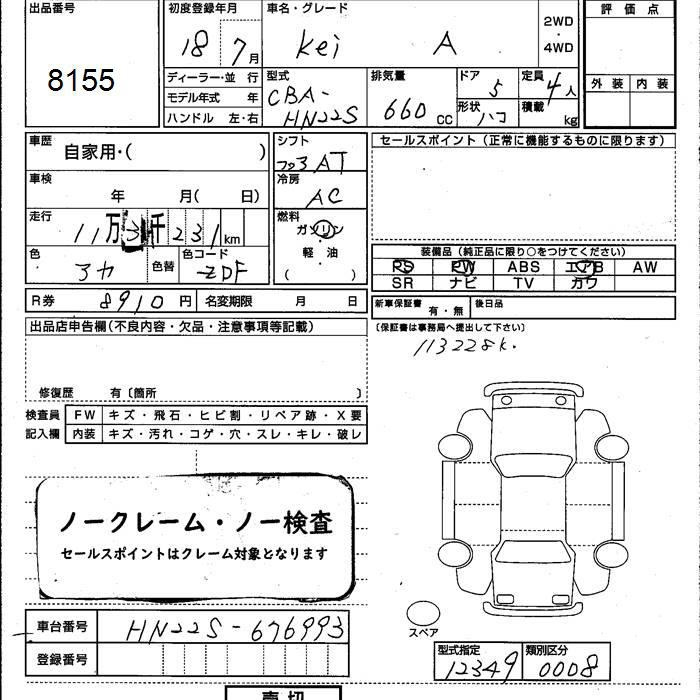 出品番号
8155
初度登録年月
18 7月
車名・グレード
Kei A
2WD
・
4WD
評価点
外装 内装
ディーラー・並行
モデル年式 年
ハンドル 左・右
型式
CBA-
HN22S
排気量
660 cc
ドア
5
形状
ハコ
定員
4人
積載
kg
車歴
自家用・( )
車検
年 月( 日)
走行
11万3千231km
色
色替
色コード
ZDF
シフト
フロ3AT
冷房
AC
燃料
ガソリン
・
軽・油
( )
セールスポイント(正常に機能するものに限ります)
装備品(純正品に限り○をつけてください)
PS PW ABS エアB AW
SR ナビ TV カワ
R券 8910円 名変期限 月 日
新車保証書 有・無 後日品
(保証書は事務局へ提出して下さい)
113228k.
出品店申告欄(不良内容・欠品・注意事項等記載)
修復歴 有〔箇所 〕
検査員 FW キズ・飛石・ヒビ割・リペア跡・X要
記入欄 内装 キズ・汚れ・コゲ・穴・スレ・キレ・破レ
ノークレーム・ノー検査
セールスポイントはクレーム対象となります
スペア
車台番号 HN22S-676993
登録番号
型式指定 類別区分
12349 0008
売切